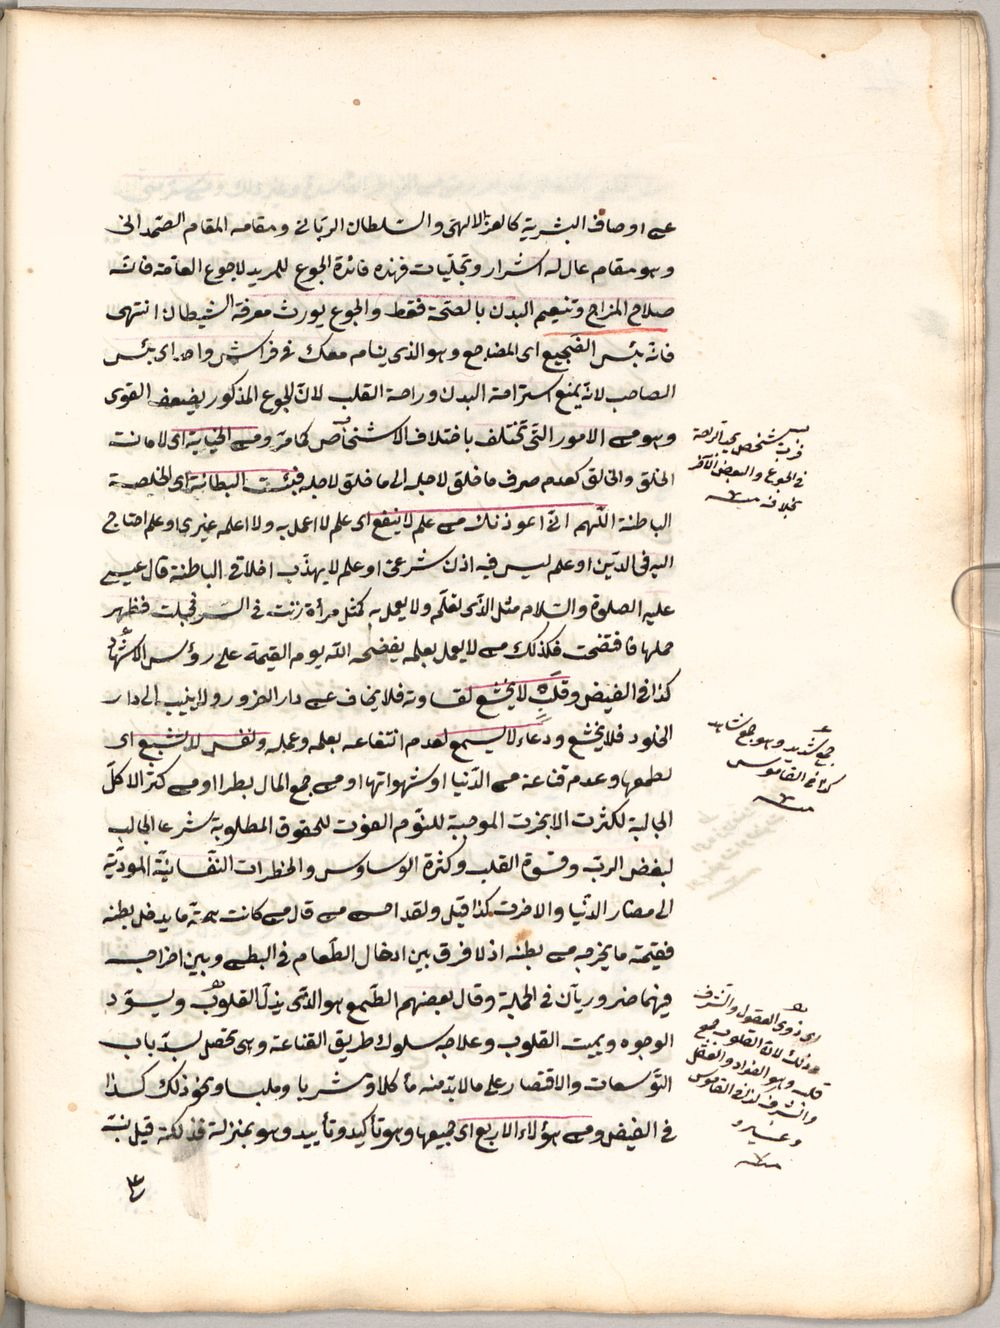 عن اوصاف البشرية كالعز الالهى والسلطان الربانى ومقامه المقام الصمدانى
وهو مقام عال له اسرار وتجليات فهذه فائدة الجوع للمريد لا جوع العامة فانه
صلاح المزاج وتنعيم البدن بالصحة فقط والجوع يورث معرفة الشيطان انتهى
فانه بئس الضجيع اى المضاجع وهو الذى ينام معك فى فراش واحد اى بئس
الصاحب لانه يمنع استراحة البدن وراحة القلب لان الجوع المذكور يضعف القوى
وهو من الامور التى تختلف باختلاف الاشخاص كما مر ومن الخيانة اى لامانت
الخلق والخالق كعدم صرف ما خلق لاجله الى ما خلق لاجله فبئست البطانة اى الخلصة
الباطنة اللهم انى اعوذ بك من علم لا ينفع اى علم لا اعمل به ولا اعلمه غيرى او علم احتاج
اليه فى الدين او علم ليس فيه اذن شرعى او علم لا يهذب اخلاق الباطنة قال عيسى
عليه الصلوة والسلام مثل الذى تعلم ولا يعمل به كمثل مرأة زنت فى السر فحبلت فظهر
حملها فافتضحت فكذلك من لا يعمل بعلمه يفضحه الله يوم القيمة على رؤس الاشهاد
كذا فى الفيض وقلب لا يخشع لقساوته فلا يخاف عن دار الغرور ولا ينيب الى دار
الخلود فلا يخشع ودعاء لا يسمع لعدم انتفاعه بعلمه وعمله ونفس لا تشبع اى
لطمعها وعدم قناعة من الدنيا او شهواتها او من جمع المال بطرا او من كثرة الاكل
الجالبة لكثرت الابخرت الموجبة للنوم المفوت للحقوق المطلوبة شرعا الجالب
لبغض الرب وقسوة القلب وكثرة الوساوس والخطرات النفسانية المودية
الى مضار الدنيا والاخرت كذا قيل ولقد احسن من قال من كانت همته ما يدخل بطنه
فقيمته ما يخرج من بطنه اذ لا فرق بين ادخال الطعام فى البطن وبين اخراجه
فهما ضروريان فى الجبلة وقال بعضهم الطمع هو الذى يذل القلوب ويسود
الوجوه ويميت القلوب وعلاجه سلوك طريق القناعة وهى تحصل بسد باب
التوسعات والاقتصار على ما لا بد منه مأكلا ومشربا وملبسا ونحو ذلك كذا
فى الفيض ومن هؤلاء الاربع اى جميعها وهو تأكيد وتأييد وهو بمنزلة فذلكة قيل نبه
فرب شخص
فى الجوع والبعض الآخر
بخلافه منه
جمع شهيد وهو جمع شاهد
كذا فى القاموس
منه
اى ذوى العقول والشرف
وذلك لان القلوب جمع
قلب وهو الفؤاد والعقل
والشرف كذا فى القاموس
وغيره
منه